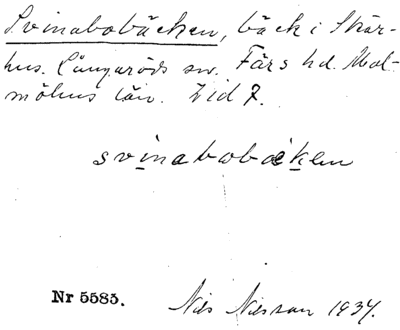 Svinabobäcken, bäck i Skär-
hus. Långaröds sn. Färs hd. Mal-
möhus län. Lid 7.
svinabobæken
Nr 5585.
Nils Nilsson 1934.